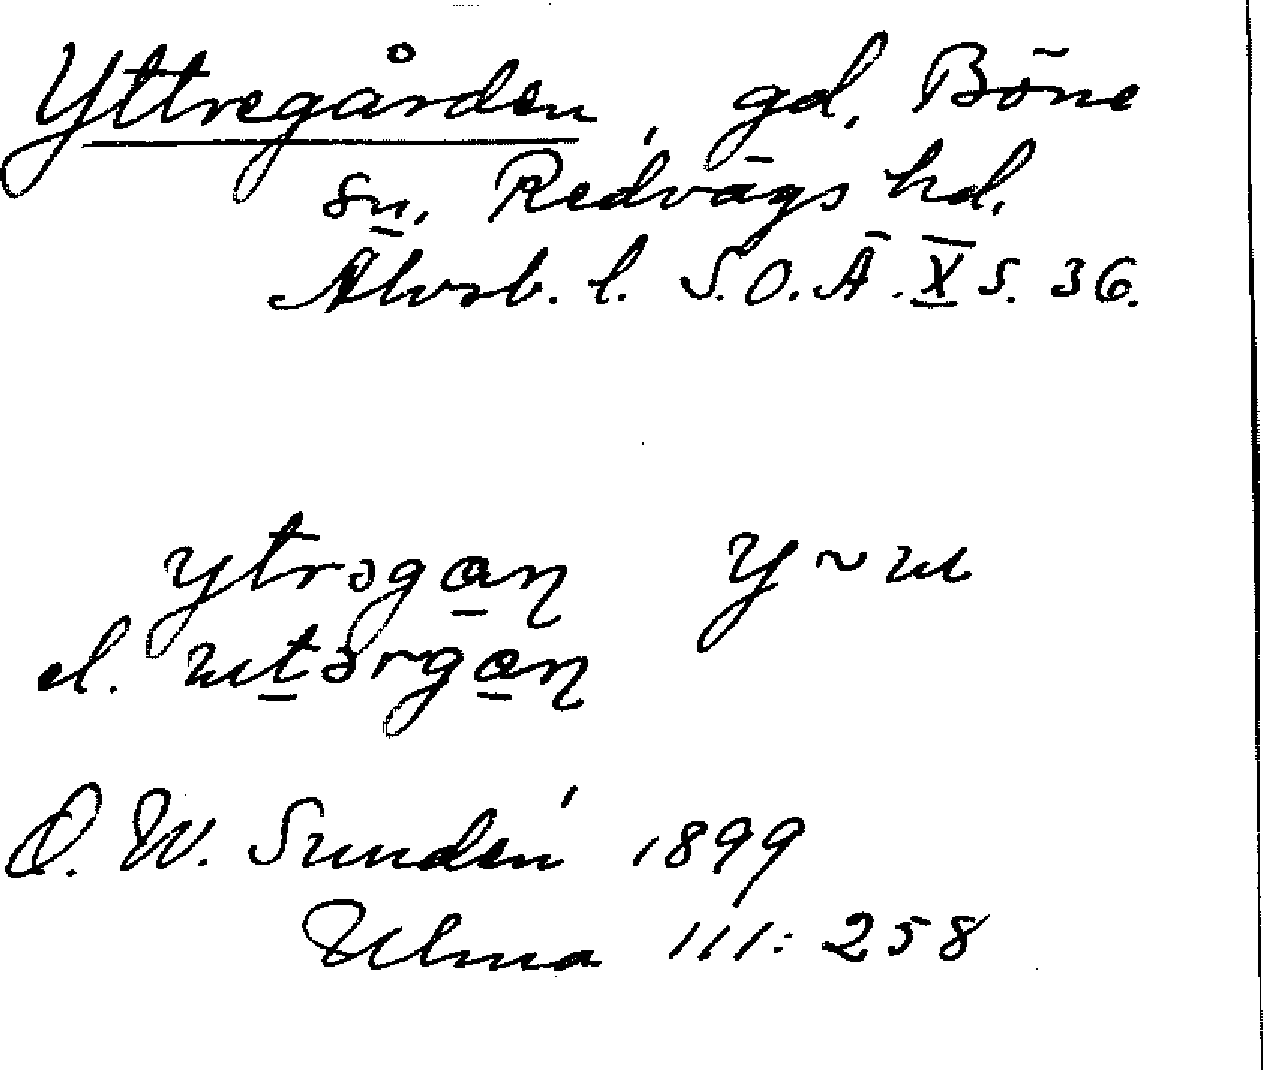 Yttregården, gd, Böne
sn, Redvägs hd,
Älvsb. l. S. O. Ä. X s. 36.
ytrəgan̨ y ~ ɯ
el. ɯtərgan̨
O. W. Sundén 1899
Ulma 111: 258